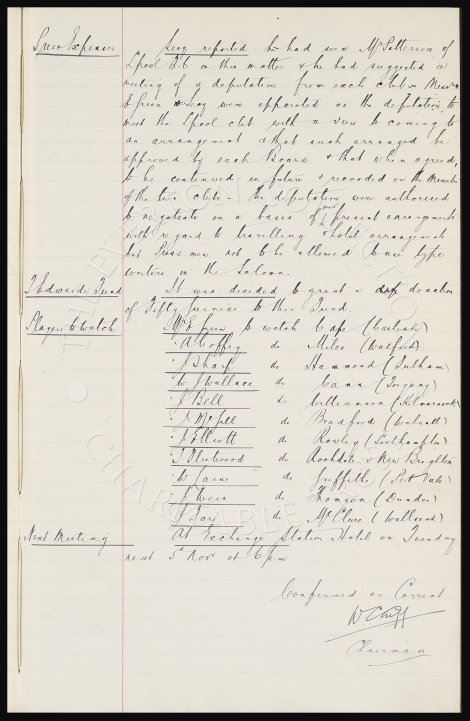 Press Expenses Secy reported he had seen Mr Patterson of
L'pool F.C. on this matter & he had suggested a
meeting of a deputation from each club - Messrs
Green & Secy were appointed as the deputation to
meet the L'pool club with a view to coming to
an arrangement & that such arranged be
approved by each Board & that when agreed,
to be continued in future & recorded on the Minutes
of the two clubs - The deputation were authorised
to negotiate on a basis of our present arrangements
with regard to travelling & hotel arrangements
but Press men not to be allowed to use type
writers in the Saloon.
J Edwards Fund It was decided to grant a donation
of Fifty Guineas to this Fund
Players to Watch Mr E Green to watch Cape (Carlisle)
" A Coffey do Miles (Watford)
" J Sharp do Hammond (Fulham)
" W J Wallace do Cann (Torquay)
" J Bell do Williamson (Kilmarnock)
" do Bradford (Walsall)
" J Elliott do Rowley (Southampton)
" T Fleetwood do Rochdale v New Brighton
" W do Griffiths (Port Vale)
" J Weir do Thomson (Dundee)
" do McClure (Wallsend)
Next Meeting At Exchange Station Hotel on Tuesday
next 5th Nov at 6 pm
Confirmed as Correct
W C Cuff
Chairman